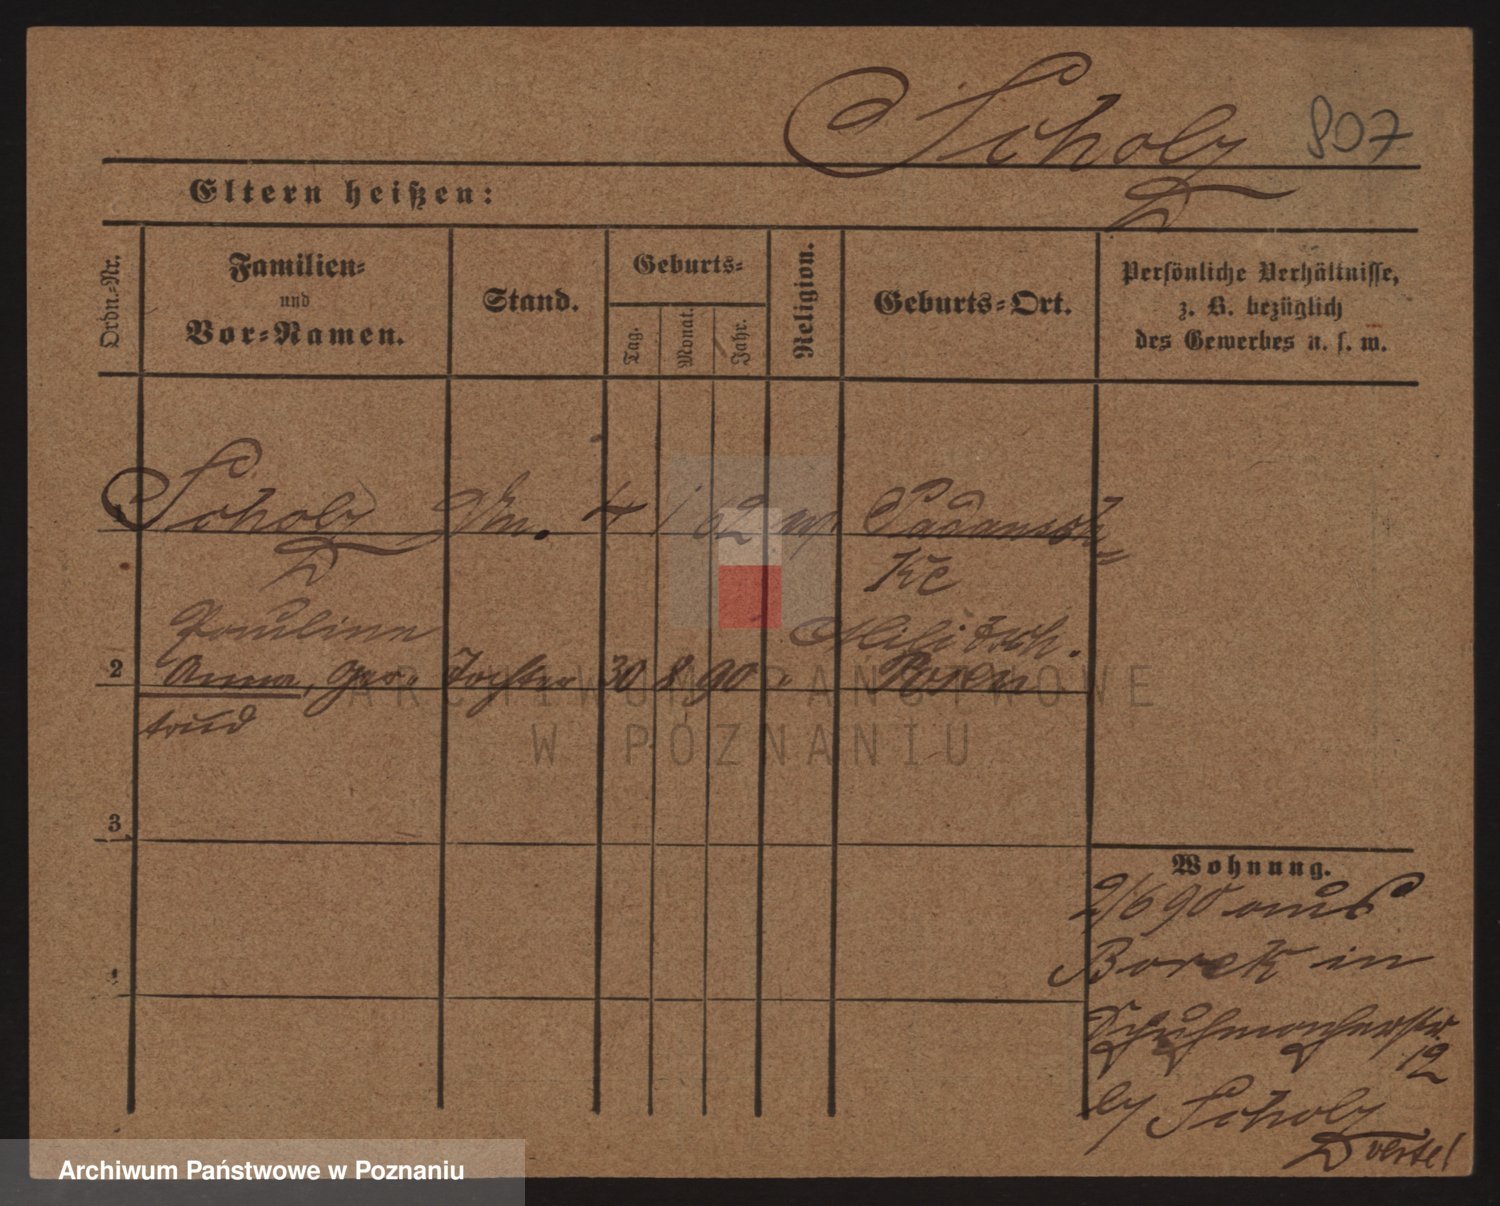 Scholz 807
Eltern heißen:
Ordn.-Nr.
Familien-
und
Vor-Namen.
Stand.
Geburts-
Tag.
Monat.
Jahr.
Religion.
Geburts-Ort.
Persönliche Verhältnisse,
z. B. bezüglich
des Gewerbes u. s. w.
Scholz 4 1 62
Kr
Pauline Militsch.
2 Anna, Ger- Tochter 30 8 90 " Posen
trud
3
4
Wohnung.
2/6 90 aus
Borek in
Schuhmacherstr.
12
by Scholz
ARCHIWUM PAŃSTWOWE
W POZNANIU
Archiwum Państwowe w Poznaniu